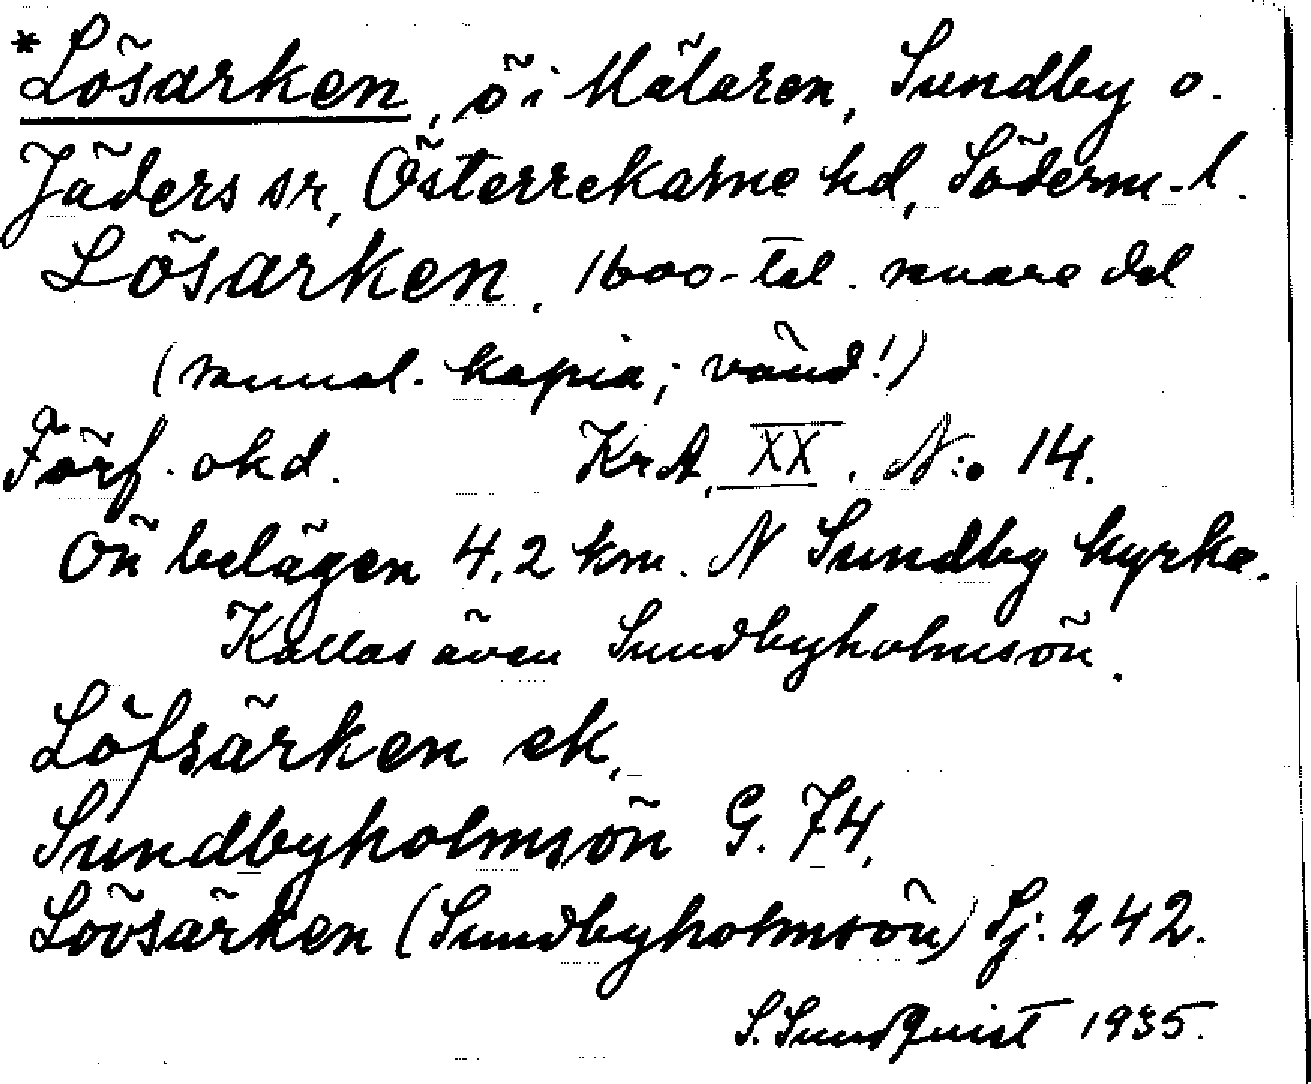 *Lösarken, ö i Mälaren, Sundby o.
Jäders sr, Österrekarne hd, Söderm-l.
Lösarken, 1600-tal. senare del
(samal. kopia; vänd!)
Förf. okd. KrA, XX. N:o 14.
Ön belägen 4,2 km. N Sundby kyrka.
Kallas även Sundbyholmsön.
Löfsärken ek,
Sundbyholmsön G. 74,
Lövsärken (Sundbyholmsön) Sj: 242.
S. Sundquist 1935.